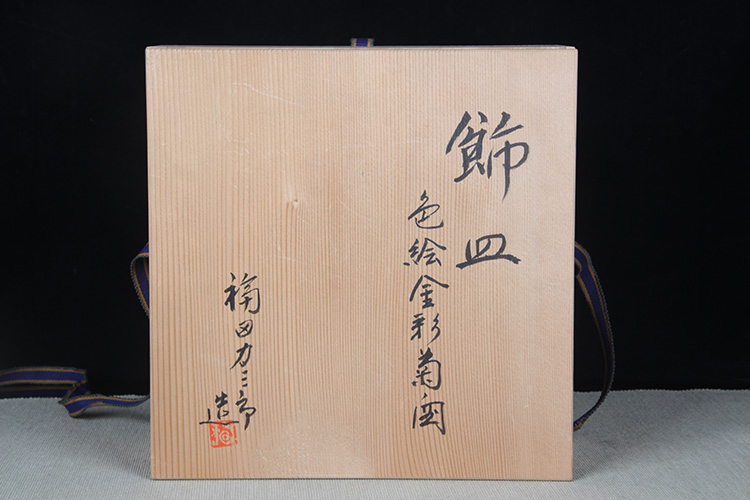 飾皿
色絵金彩菊図
福田力三郎
造